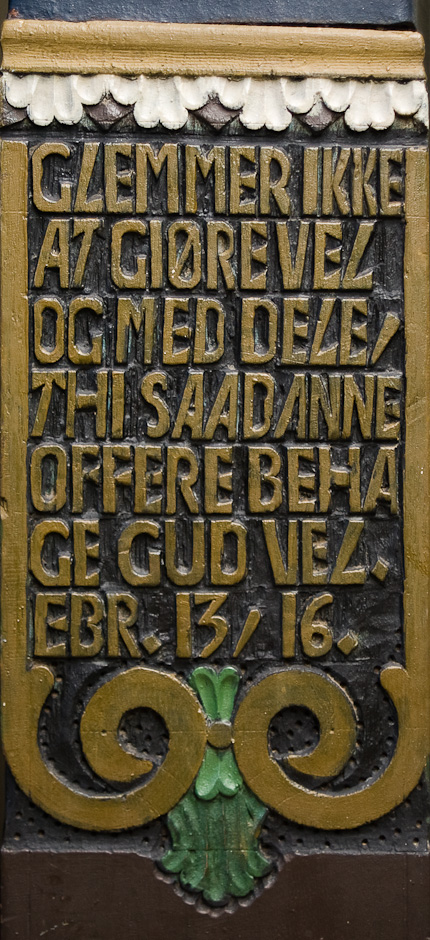 GLEMMER IKKE
AT GIØRE VEL
OG MED DELE,
THI SAADANNE
OFFERE BEHA
GE GUD VEL.
EBR. 13, 16.